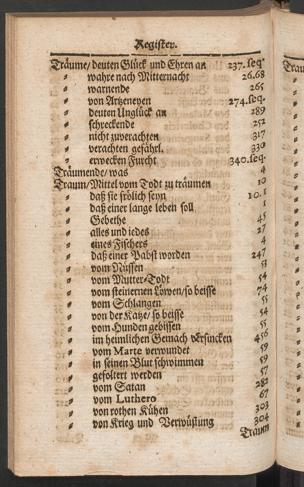 Register.
Träume/deuten Glück und Ehren an 237.seq.
〃 wahre nach Mitternacht 26.68
〃 warnende 265
〃 von Artzeneyen 274.seq.
〃 deuten Unglück an 289
〃 schreckende 252
〃 nicht zuverachten 317
〃 verachten gefährl. 330
〃 erwecken Furcht 340.seq.
Träumende/was 4
Traum/Mittel vom Todt zu träumen 10
〃 daß sie frölich seyn 10.1
〃 daß einer lange leben soll 1
〃 Gebethe 45
〃 alles und iedes 27
〃 eines Fischers 4
〃 daß einer Pabst worden 247
〃 vom Nüssen 53
〃 vom Mutter-Todt 54
〃 vom steinernen Löwen/so beisse 74
〃 vom Schlangen 55
〃 von der Katze/so beisse 54
〃 vom Hunden gebissen 55
〃 im heimlichen Gemach versincken 456
〃 vom Marte verwundet 59
〃 in seinen Blut schwimmen 59
〃 gefoltert werden 57
〃 vom Satan 282
〃 vom Luthero 67
〃 von rothen Kühen 303
〃 von Krieg und Verwüstung 304
Traum
Trau